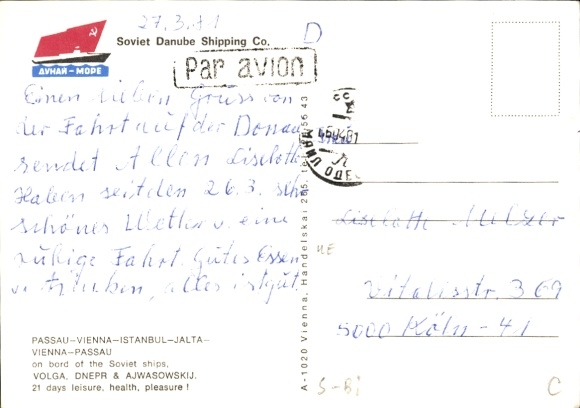 27.3.81
D
Soviet Danube Shipping Co.
ДУНАЙ – МОРЕ
Par avion
Einen lieben Gruss von
der Fahrt auf der Donau
sendet Allen Liselotte
Haben seit den 26.3. sehr
schönes Wetter u. eine
ruhige Fahrt. Gutes Essen
u. trinken, alles ist gut.
PASSAU–VIENNA–ISTANBUL–JALTA–
VIENNA–PASSAU
on bord of the Soviet ships,
VOLGA, DNEPR & AJWASOWSKIJ.
21 days leisure, health, pleasure !
A-1020 Vienna, Handelskai 265, tel. 56 43
Liselotte Melzer
Vitalisstr. 369
5000 Köln - 41
S-Bi
C